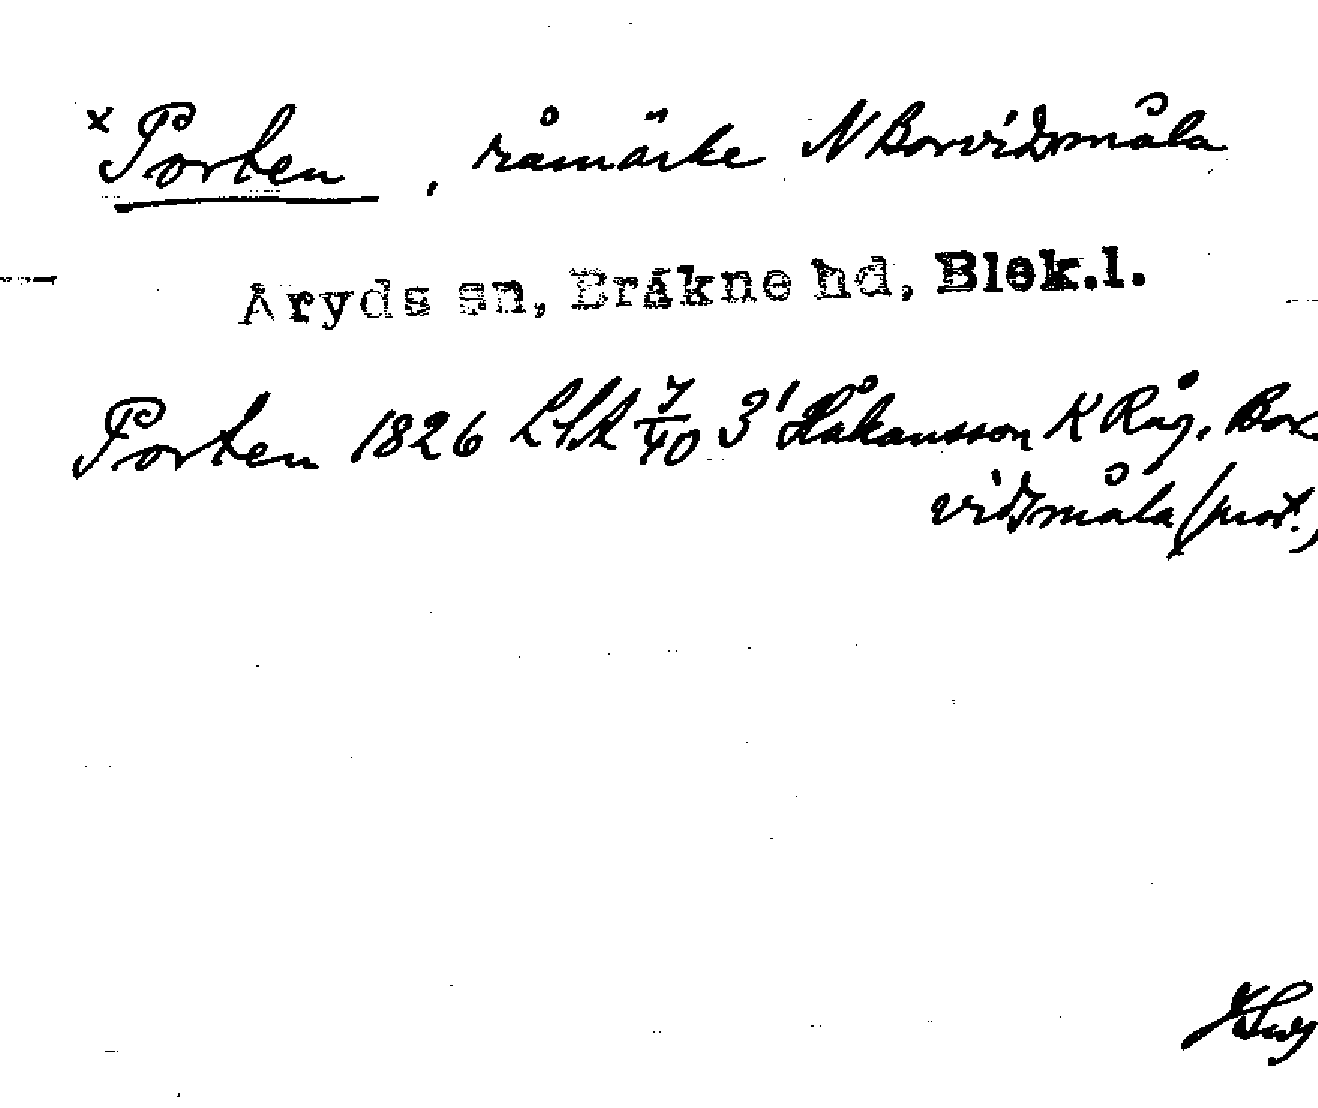 x Porten, råmärke N Borvidsmåla
Åryds sn, Bräkne hd, Blek.l.
Porten 1826 7/40 3' Håkansson K Råg. Bor
vidsmåla (prot.)